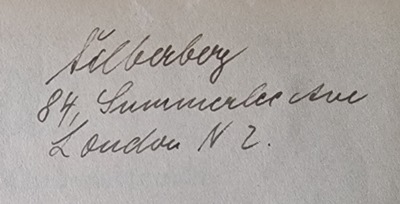 Silberberg
84, Summerlee Ave
London N 2.